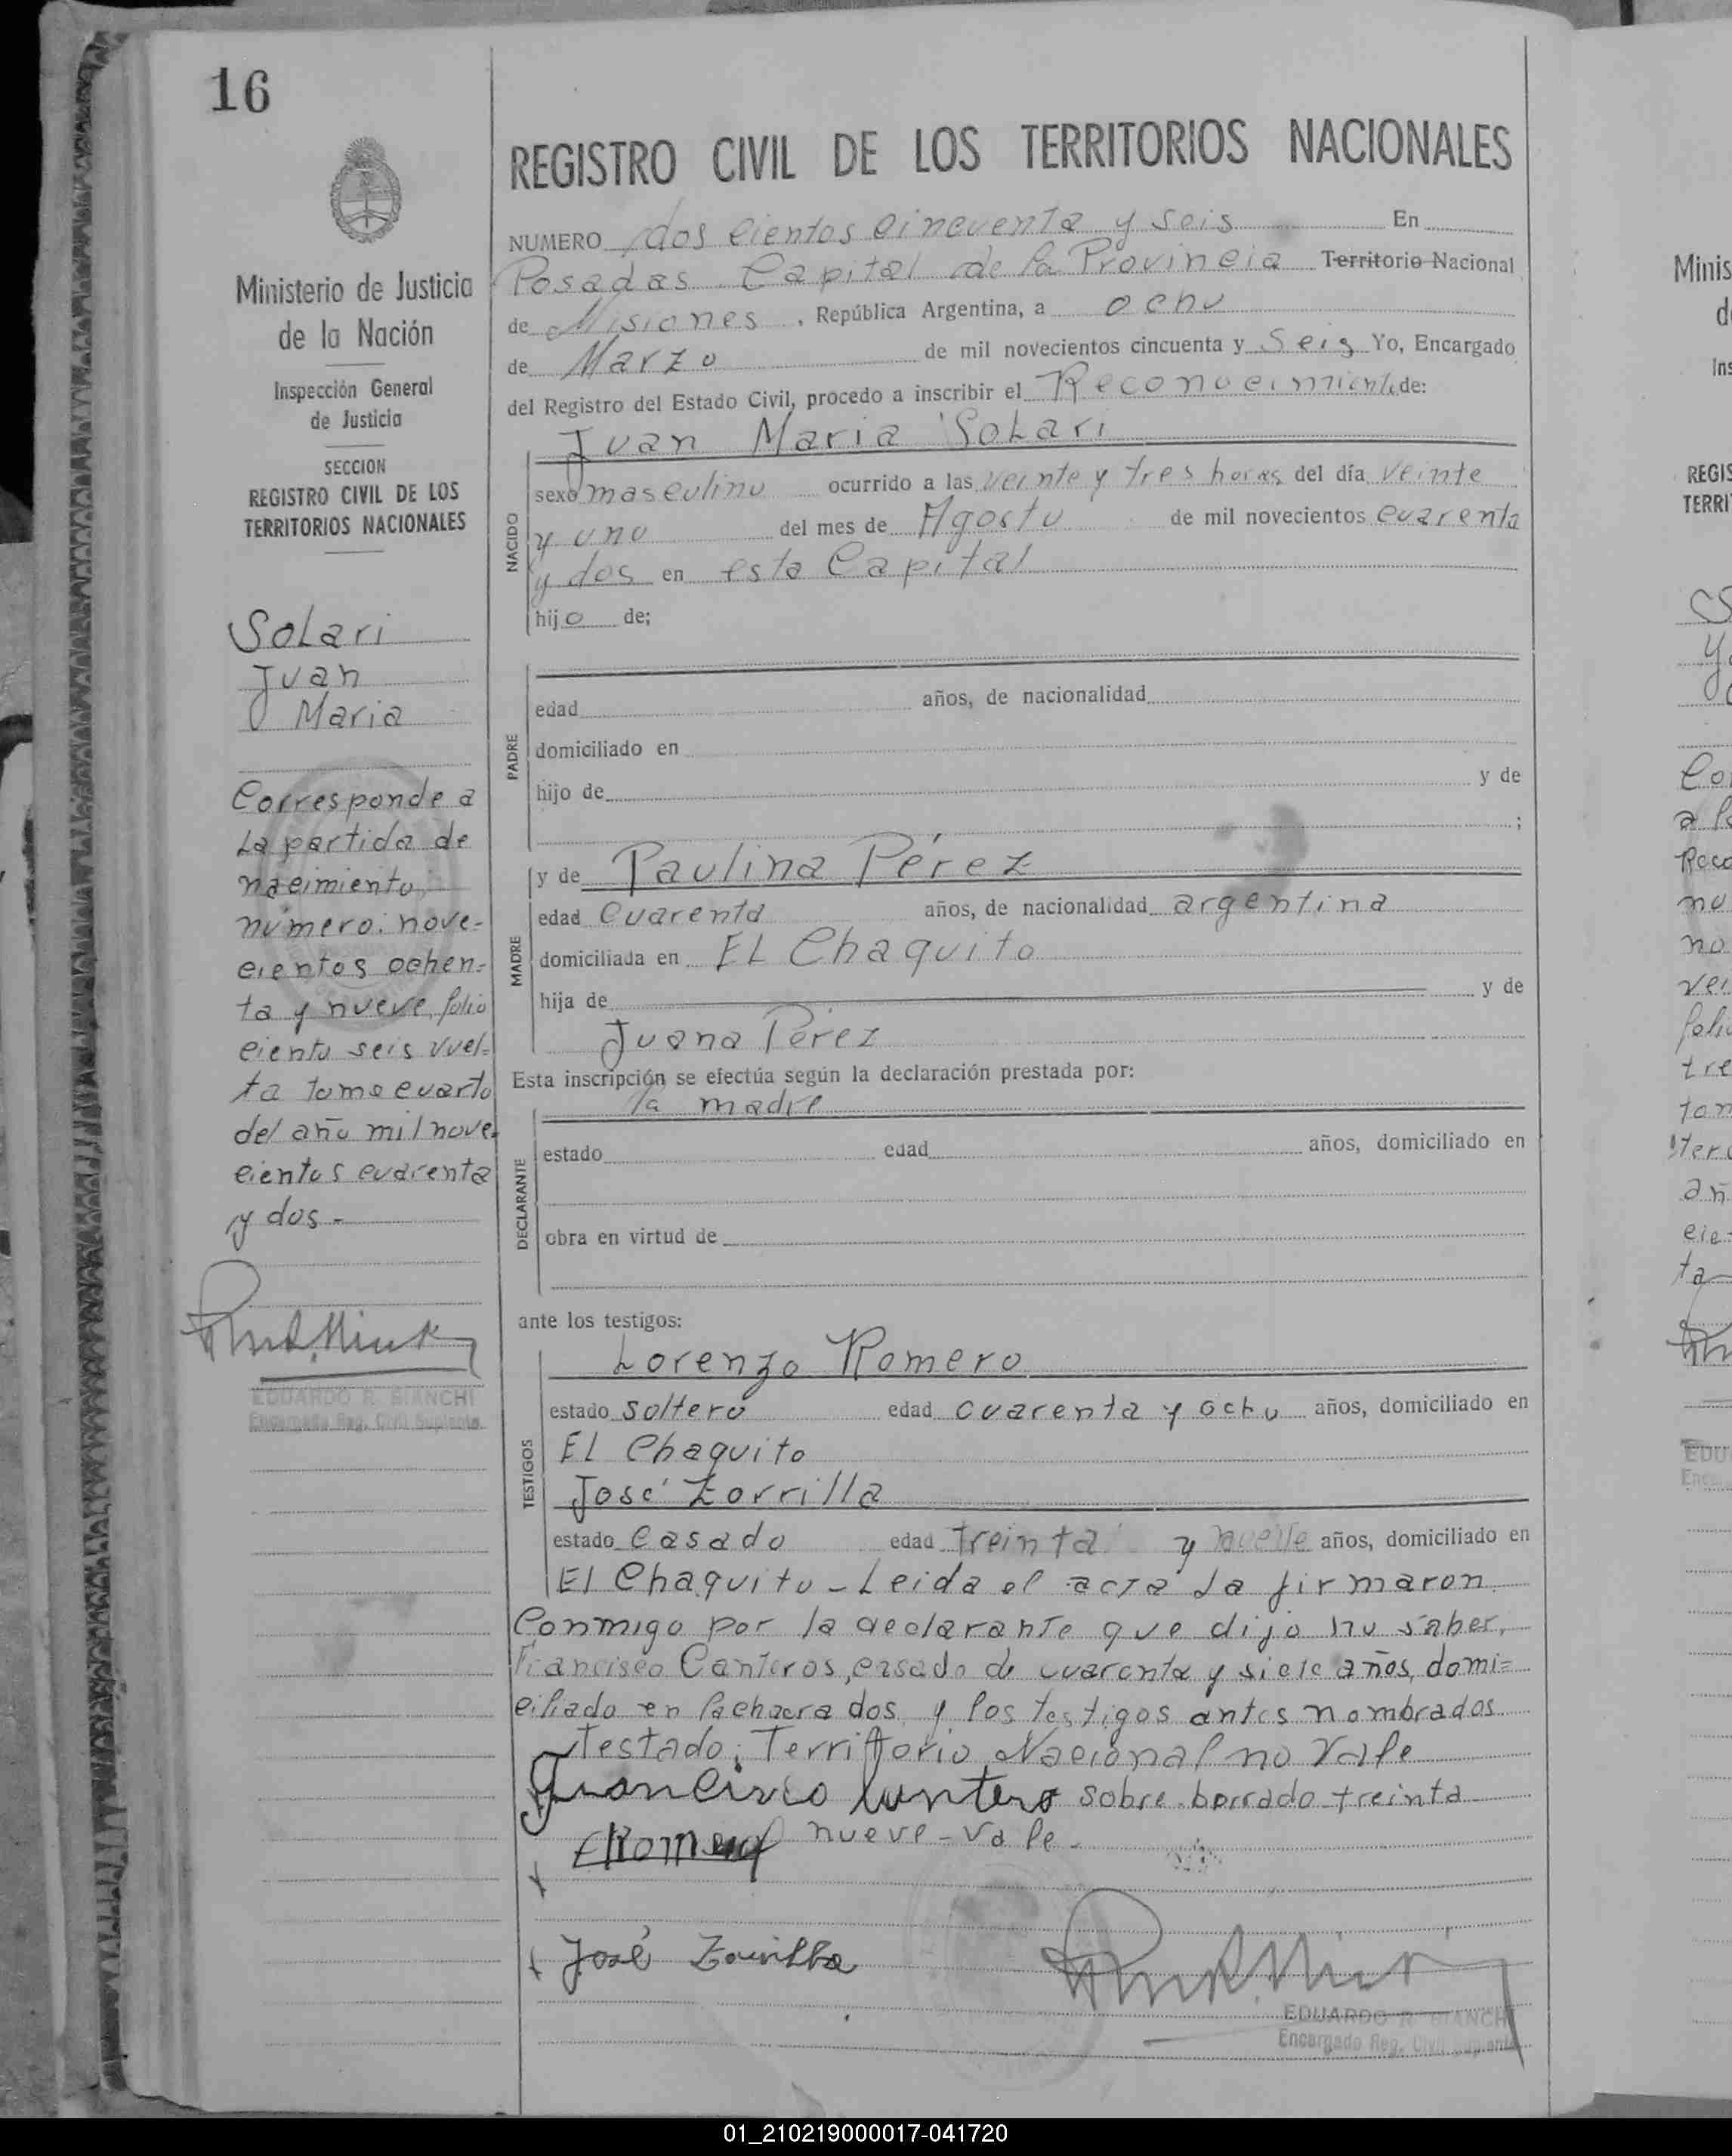 16
REGISTRO CIVIL DE LOS TERRITORIOS NACIONALES
Ministerio de Justicia
de la Nación
Inspección General
de Justicia
SECCION
REGISTRO CIVIL DE LOS
TERRITORIOS NACIONALES
Solari
Juan
Maria
Corresponde a
la partida de
nacimiento
número: nove=
cientos ochen=
ta y nueve, folio
ciento seis vuel=
ta tomo cuarto
del año mil nove
cientos cuarenta
y dos.-
EDUARDO R. BIANCHI
Encargado Reg. Civil Suplente
NUMERO dos cientos cincuenta y seis En
Posadas Capital de la Provincia Territorio Nacional
de Misiones, República Argentina, a ocho
de Marzo de mil novecientos cincuenta y seis Yo, Encargado
del Registro del Estado Civil, procedo a inscribir el Reconocimiento de:
Juan Maria Solari
NACIDO
sexo masculino ocurrido a las veinte y tres horas del día veinte
y uno del mes de Agosto de mil novecientos cuarenta
y dos en esta Capital
hijo de;
PADRE
edad años, de nacionalidad
domiciliado en
hijo de y de
;
y de Paulina Pérez
MADRE
edad cuarenta años, de nacionalidad argentina
domiciliada en El Chaquito
hija de y de
Juana Pérez
Esta inscripción se efectúa según la declaración prestada por:
la madre
DECLARANTE
estado edad años, domiciliado en
obra en virtud de
ante los testigos:
TESTIGOS
Lorenzo Romero
estado soltero edad cuarenta y ocho años, domiciliado en
El Chaquito
José Zorrilla
estado casado edad treinta y nueve años, domiciliado en
El Chaquito - Leida el acta la firmaron
conmigo por la declarante que dijo no saber,
Francisco Canteros, casado de cuarenta y siete años, domi=
ciliado en la chacra dos y los testigos antes nombrados
Testado: Territorio Nacional no vale
Francisco Cantero sobre borrado treinta
Romero nueve - vale -
José Zorrilla
EDUARDO R. BIANCHI
Encargado Reg. Civil Suplente
01_210219000017-041720